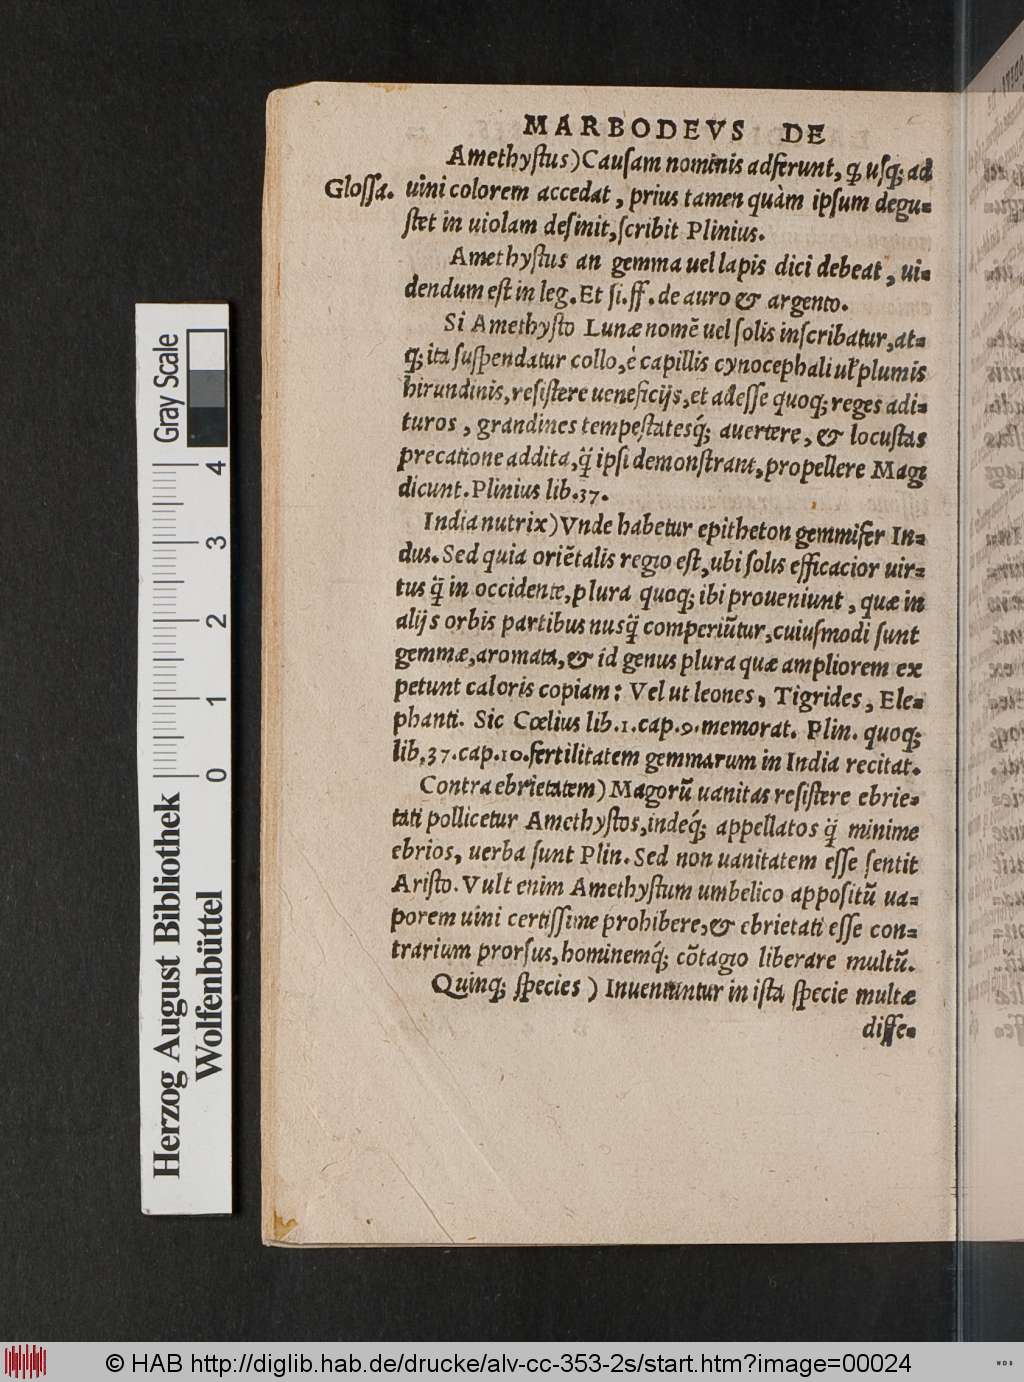 MARBODEVS DE
Amethyſtus) Cauſam nominis adferunt, ꝙ uſq; ad
Gloſſa. uini colorem accedat, prius tamen quàm ipſum degu-
ſtet in uiolam deſinit, ſcribit Plinius.
Amethyſtus an gemma uel lapis dici debeat, ui-
dendum eſt in leg. Et ſi. ff. de auro & argento.
Si Amethyſto Lunæ nomẽ uel ſolis inſcribatur, at-
q; ita ſuſpendatur collo, è capillis cynocephali uł plumis
hirundinis, reſiſtere ueneficijs, et adeſſe quoq; reges adi-
turos, grandines tempeſtatesq́; auertere, & locuſtas
precatione addita, q̃ ipſi demonſtrant, propellere Magi
dicunt. Plinius lib. 37.
India nutrix) Vnde habetur epitheton gemmifer In-
dus. Sed quia oriẽtalis regio eſt, ubi ſolis efficacior uir-
tus q̃ in occidente, plura quoq; ibi proueniunt, quæ in
alijs orbis partibus nusq̃ comperiũtur, cuiuſmodi ſunt
gemmæ, aromata, & id genus plura quæ ampliorem ex
petunt caloris copiam: Vel ut leones, Tigrides, Ele-
phanti. Sic Cœlius lib. 1. cap. 9. memorat. Plin. quoq;
lib, 37. cap. 10. fertilitatem gemmarum in India recitat.
Contra ebrietatem) Magorũ uanitas reſiſtere ebrie-
tati pollicetur Amethyſtos, indeq́; appellatos q̃ minime
ebrios, uerba ſunt Plin. Sed non uanitatem eſſe ſentit
Ariſto. Vult enim Amethyſtum umbelico appoſitũ ua-
porem uini certiſſime prohibere, & ebrietati eſſe con-
trarium prorſus, hominemq́; cõtagio liberare multũ.
Quinq; ſpecies) Inueniuntur in iſta ſpecie multæ
diffe-
Gray Scale
4
3
2
1
0
Herzog August Bibliothek
Wolfenbüttel
© HAB http://diglib.hab.de/drucke/alv-cc-353-2s/start.htm?image=00024